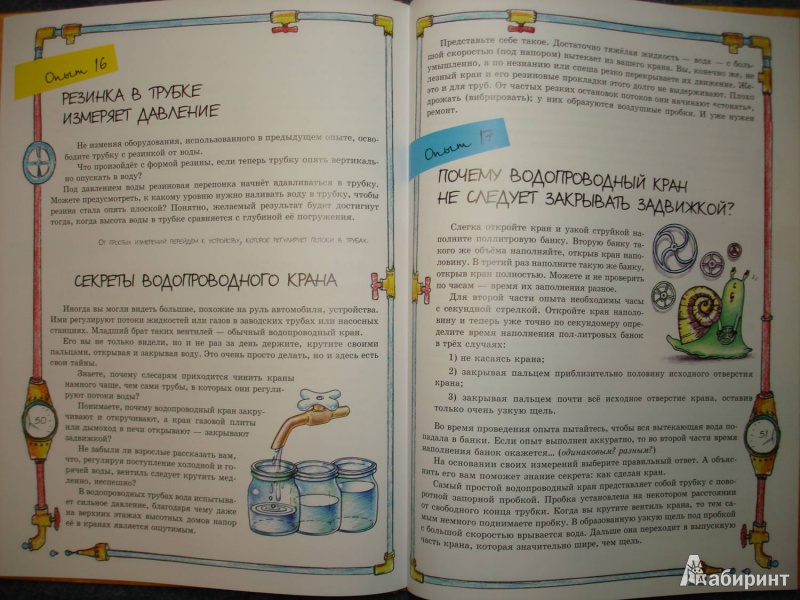 Опыт 16
РЕЗИНКА В ТРУБКЕ
ИЗМЕРЯЕТ ДАВЛЕНИЕ
Не изменяя оборудования, использованного в предыдущем опыте, осво-
бодите трубку с резинкой от воды.
Что произойдёт с формой резины, если теперь трубку опять вертикаль-
но опускать в воду?
Под давлением воды резиновая перепонка начнёт вдавливаться в трубку.
Можете предусмотреть, к какому уровню нужно наливать воду в трубку, чтобы
резина стала опять плоской? Понятно, желаемый результат будет достигнут
тогда, когда высота воды в трубке сравняется с глубиной её погружения.
От простых измерений перейдём к устройству, которое регулирует потоки в трубах.
СЕКРЕТЫ ВОДОПРОВОДНОГО КРАНА
Иногда вы могли видеть большие, похожие на руль автомобиля, устройства.
Ими регулируют потоки жидкостей или газов в заводских трубах или насосных
станциях. Младший брат таких вентилей — обычный водопроводный кран.
Его вы не только видели, но и не раз за день держите, крутите своими
пальцами, открывая и закрывая воду. Это очень просто делать, но и здесь есть
свои тайны.
Знаете, почему слесарям приходится чинить краны
намного чаще, чем сами трубы, в которых они регули-
руют потоки воды?
Понимаете, почему водопроводный кран закру-
чивают и откручивают, а кран газовой плиты
или дымоход в печи открывают — закрывают
задвижкой?
Не забыли ли взрослые рассказать вам,
что, регулируя поступление холодной и го-
рячей воды, вентиль следует крутить мед-
ленно, неспешно?
В водопроводных трубах вода испытыва-
ет сильное давление, благодаря чему даже
на верхних этажах высотных домов напор
её в кранах является ощутимым.
50
Представьте себе такое. Достаточно тяжёлая жидкость — вода — с боль-
шой скоростью (под напором) вытекает из вашего крана. Вы, конечно же, не
умышленно, а по незнанию или спеша резко перекрываете их движение. Же-
лезный кран и его резиновые прокладки этого долго не выдерживают. Плохо
это и для труб. От частых резких остановок потоков они начинают «стонать»,
дрожать (вибрировать); у них образуются воздушные пробки. И уже нужен
ремонт.
Опыт 17
ПОЧЕМУ ВОДОПРОВОДНЫЙ КРАН
НЕ СЛЕДУЕТ ЗАКРЫВАТЬ ЗАДВИЖКОЙ?
Слегка откройте кран и узкой струйкой на-
полните поллитровую банку. Вторую банку та-
кого же объёма наполняйте, открыв кран напо-
ловину. В третий раз наполните такую же банку,
открыв кран полностью. Можете и не проверять
по часам — время их заполнения разное.
Для второй части опыта необходимы часы
с секундной стрелкой. Откройте кран напо-
ловину и теперь уже точно по секундомеру опре-
делите время наполнения пол-литровых банок
в трёх случаях:
1) не касаясь крана;
2) закрывая пальцем приблизительно половину исходного отверстия
крана;
3) закрывая пальцем почти всё исходное отверстие крана, оставив
только очень узкую щель.
Во время проведения опыта пытайтесь, чтобы вся вытекающая вода по-
падала в банки. Если опыт выполнен аккуратно, то во второй части время
наполнения банок окажется... (одинаковым? разным?)
На основании своих измерений выберите правильный ответ. А объяс-
нить его вам поможет знание секрета: как сделан кран.
Самый простой водопроводный кран представляет собой трубку с пово-
ротной запорной пробкой. Пробка установлена на некотором расстоянии
от свободного конца трубки. Когда вы крутите вентиль крана, то тем са-
мым немного поднимаете пробку. В образованную узкую щель под пробкой
с большой скоростью врывается вода. Дальше она переходит в выпускную
часть крана, которая значительно шире, чем щель.
51
Лабиринт